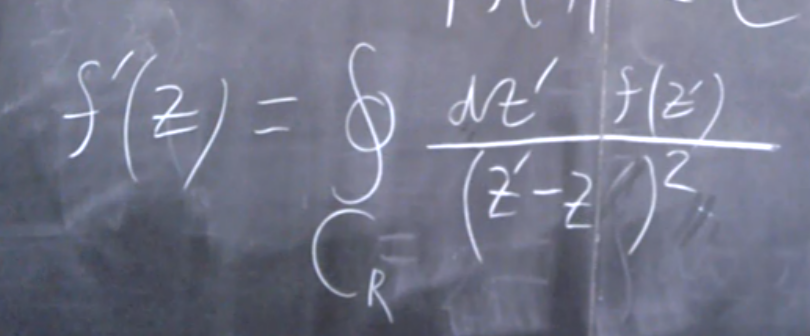 f'(z) = ∮_{C_R} \frac{dz' f(z')}{(z'-z)^2}